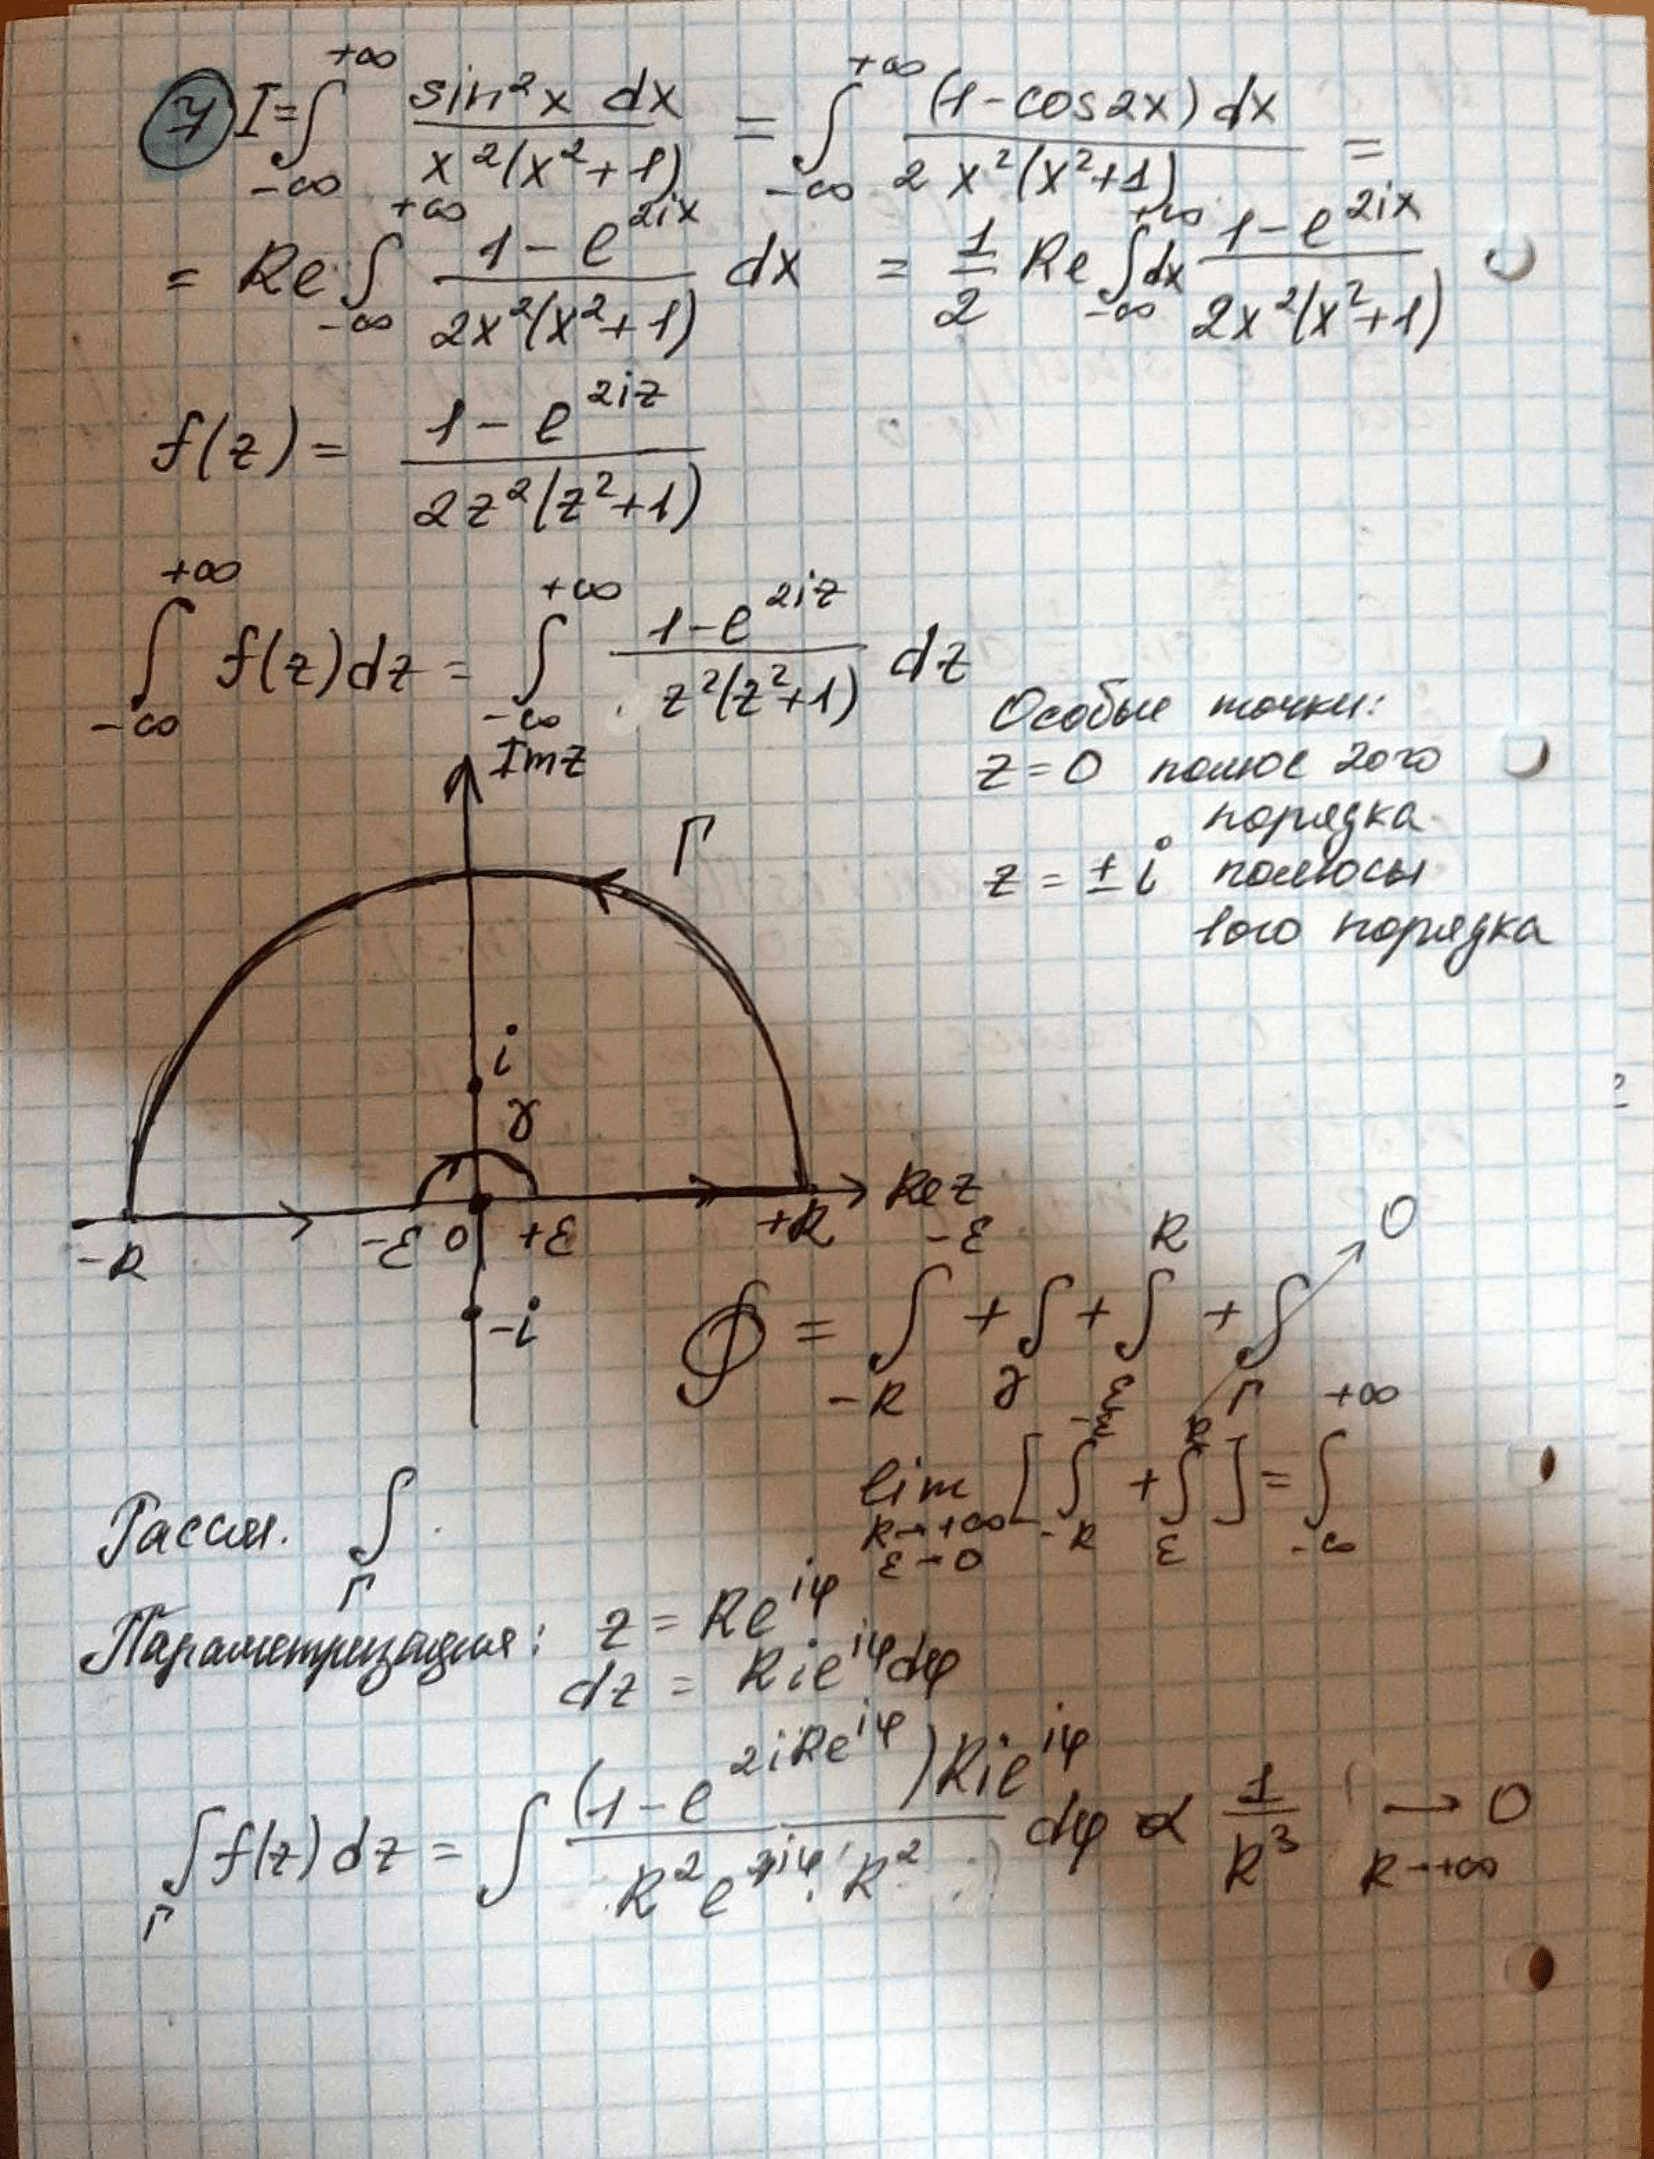 7 I = ∫_{-∞}^{+∞} sin²x dx / x²(x²+1) = ∫_{-∞}^{+∞} (1-cos2x) dx / 2x²(x²+1) =
= Re ∫_{-∞}^{+∞} 1-e^{2ix} / 2x²(x²+1) dx = 1/2 Re ∫_{-∞}^{+∞} dx 1-e^{2ix} / 2x²(x²+1)
f(z) = 1-e^{2iz} / 2z²(z²+1)
∫_{-∞}^{+∞} f(z)dz = ∫_{-∞}^{+∞} 1-e^{2iz} / z²(z²+1) dz
Особые точки:
z = 0 полюс 2ого
порядка
z = ± i полюсы
1ого порядка
Imz
Γ
i
γ
-R -ε 0 +ε +R Rez
-i
∮ = ∫_{-R}^{-ε} + ∫_γ + ∫_ε^R + ∫_Γ → 0
lim_{R→+∞ ε→0} [∫_{-R}^{-ε} + ∫_ε^R] = ∫_{-∞}^{+∞}
Рассм. ∫_Γ
Параметризация: z = Re^{iφ}
dz = Rie^{iφ}dφ
∫_Γ f(z)dz = ∫ (1-e^{2iRe^{iφ}})Rie^{iφ} / R²e^{iφ}·R² dφ ∝ 1/R³ →_{R→+∞} 0